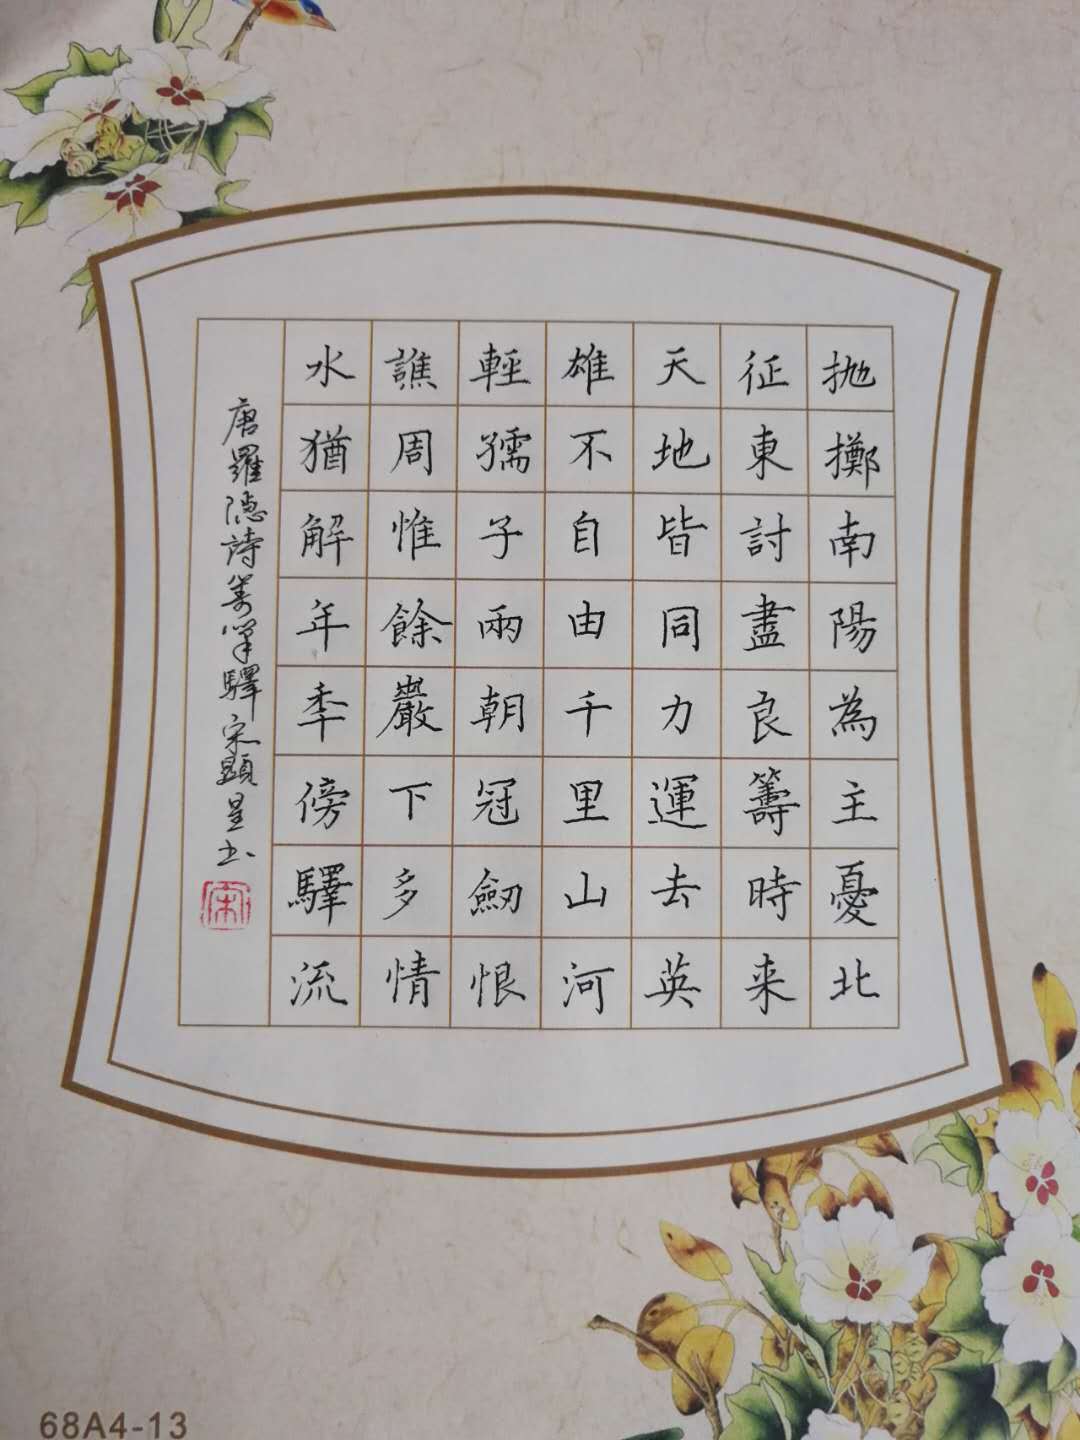 抛擲南陽為主憂北
征東討盡良籌時来
天地皆同力運去英
雄不自由千里山河
輕孺子兩朝冠劒恨
譙周惟餘巖下多情
水猶解年年傍驛流
唐羅隱詩籌筆驛宋顯呈书
宋
68A4-13